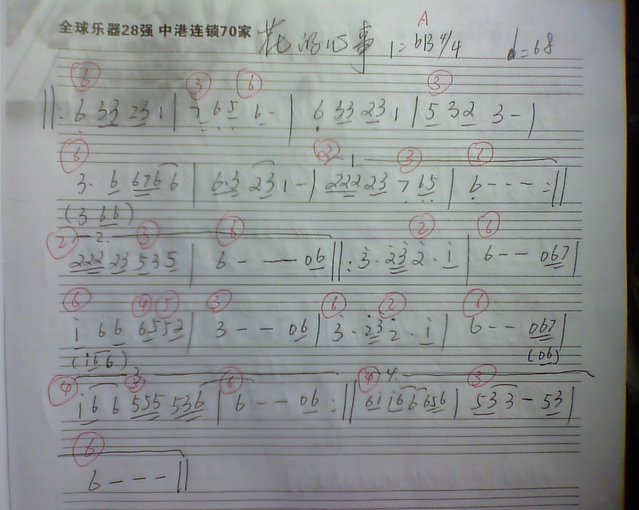 全球乐器28强 中港连锁70家 花的心事 1=bB 4/4 ♩=68
A
⑥ ③ ⑥ ③
‖: 6 33 23 1 | 7 6 5 6 - | 6 33 23 1 | 5 32 3 - |
⑥ ② 1. ③ ⑥
3. 6 676 6 | 6.3 23 1 - | 222 23 7 65 | 6 - - - :‖
(3 66)
② 2. ③ ⑥ ② ⑥
222 23 535 | 6 - — 06 ‖: 3. 23 2. 1 | 6 - - 067 |
⑥ ④ ⑤ ③ ⑥ ② ⑥
i 6 6 6552 | 3 - - 06 | 3. 23 2. i | 6 - - 067 |
(i66) (06)
④ 3. ③ ⑥ ④ 4. ③
i 6 6 555 536 | 6 - - 06 :‖ 6i i66 656 | 53 3 - 53 |
⑥
6 - - - ‖